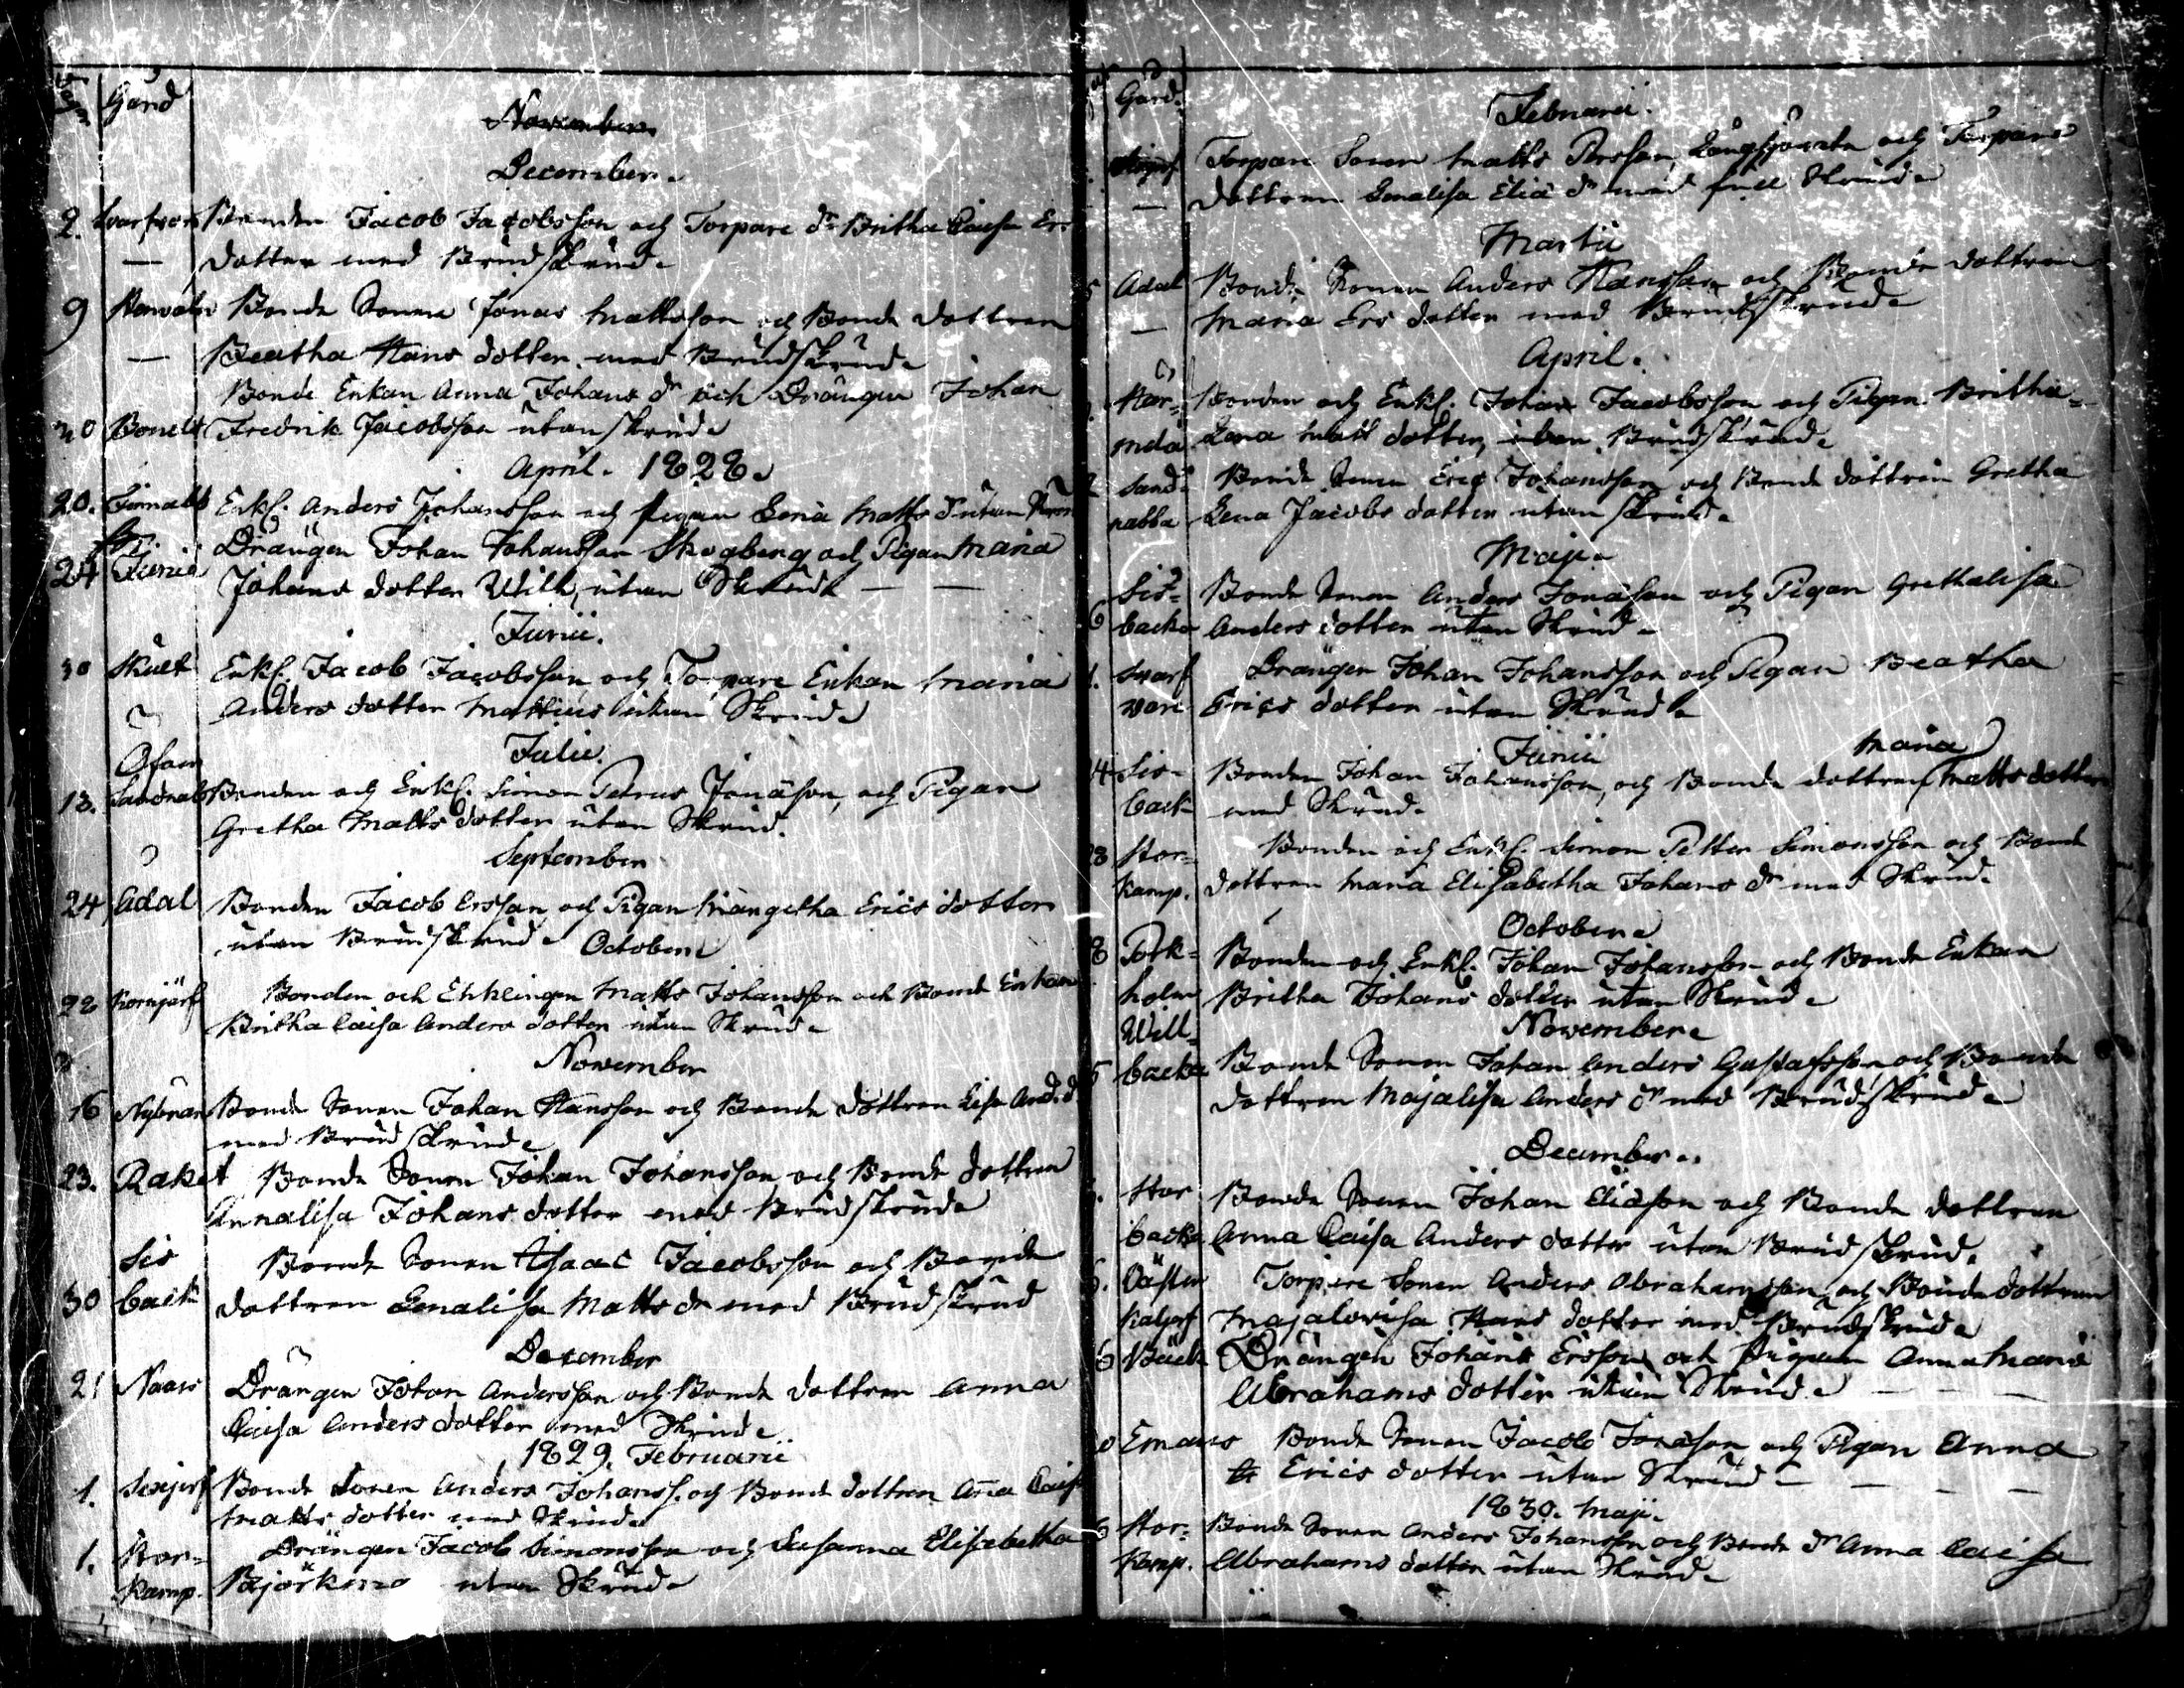 Gård
November
December.
2. Svarfvar Bonden Jacob Jacobsson och Torpare dr Britha Caisa Ers
— dotter med Brudskrud.
9 Bonde Sonen Jonas Mattsson och Bonde dottren
— Beatha Hans dotter med Brudskrud.
Bonde Enkan Anna Johans dr och Drängen Johan
30 Fredrik Jacobsson utan skrud.
April. 1828.
20. Enkl. Anders Johansson och pigan Lena Matts dr utan
Drängen Johan Johansson Skogberg och Pigan Maria
24 Junii Johans dotter Wilk, utan Skrud — —
Junii.
30 Skult Enkl. Jacob Jacobsson och Torpare Enkan Maria
Anders dotter Mattius utan Skrud.
Julii.
Ofan
13. Sandnab Bonden och Enkl. Simon Petrus Jonäson, och Pigan
Gretha Matts dotter utan Skrud.
September
24 Ådal Bonden Jacob Ersson och Pigan Margetha Erics dotter
utan Brudskrud.
October.
22 Kornjärf Bonden och Enklingen Matts Johansson och Bonde Enkan
Britha Caisa Anders dotter utan Skrud.
November
16 Nybrän Bonde Sonen Johan Hansson och Bonde dottren Lisa And. d.
med Brudskrud.
23. Raket Bonde Sonen Johan Johansson och Bonde dottren
Annalisa Johans dotter med Brudskrud.
Sis
30 back Bonde Sonen Isaac Jacobsson och Bonde
dottren Lenalisa Matts dr med Brudskrud
December
21 Naars Drängen Johan Andersson och Bonde dottren Anna
Caisa Anders dotter med Skrud.
1829. Februarii
1. Sexjerf Bonde Sonen Anders Johanss. och Bonde dottren Aña Cais
Matts dotter med Skrud.
1. Stor- Drängen Jacob Simonsson och Susanna Elisabetha
kamp. Björkmo utan Skrud.
Gård.
Februarii.
Torpare Sonen Matts Persson, Långsjöarta och Torpare
— dottren Lenalisa Eliä dr med full Skrud.
Martii
Ådal Bonde Sonen Anders Hansson och Bonde dottren
— Maria Ers dotter med Brudskrud.
April.
Här- Bonden och Enkl. Johan Jacobsson och Pigan Britha-
mälä Lena Matt dotter, utan Brudskrud.
Sand- Bonde Sonen Eric Johansson och Bonde dottren Gretha
nabba Lena Jacobs dotter utan skrud.
Maji.
Sis- Bonde Sonen Anders Jonäson och Pigan Grethalisa
6 backa Anders dotter utan Skrud.
Svarf Drängen Johan Johansson och Pigan Beatha
vare Erics dotter utan Skrud.
Junii
4 Sis- Bonden Johan Johansson, och Bonde dottren Maria Matts dotter
back- med Skrud.
8 Stor- Bonden och Enkl. Simon Petter Simonsson och Bonde
kamp. dottren Maria Elisabetha Johans dr med Skrud.
October.
8 Pork- Bonden och Enkl. Johan Johansson och Bonde Enkan
holm Britha Johans dotter utan Skrud.
November.
Will-
backa Bonde Sonen Johan Anders Gustafsson och Bonde
dottren Majalisa Anders dr med Brudskrud.
December.
Stor Bonde Sonen Johan Eliäson och Bonde dottren
backa Anna Caisa Anders dotter utan Brudskrud.
Öästen Torpare Sonen Anders Abrahamsson och Bonde dottren
Kaljerf Majalovisa Hans dotter med Brudskrud.
6 Bäck Drängen Johans Ersson och Pigan Anna Maria
Abrahams dotter utan Skrud. — — —
Emaus Bonde Sonen Jacob Jonäson och Pigan Anna
Erics dotter utan Skrud — — — —
1830. Maji.
6 Stor- Bonde Sonen Anders Johansson och Bonde dr Anna Caisa
kamp. Abrahams dotter utan Skrud.